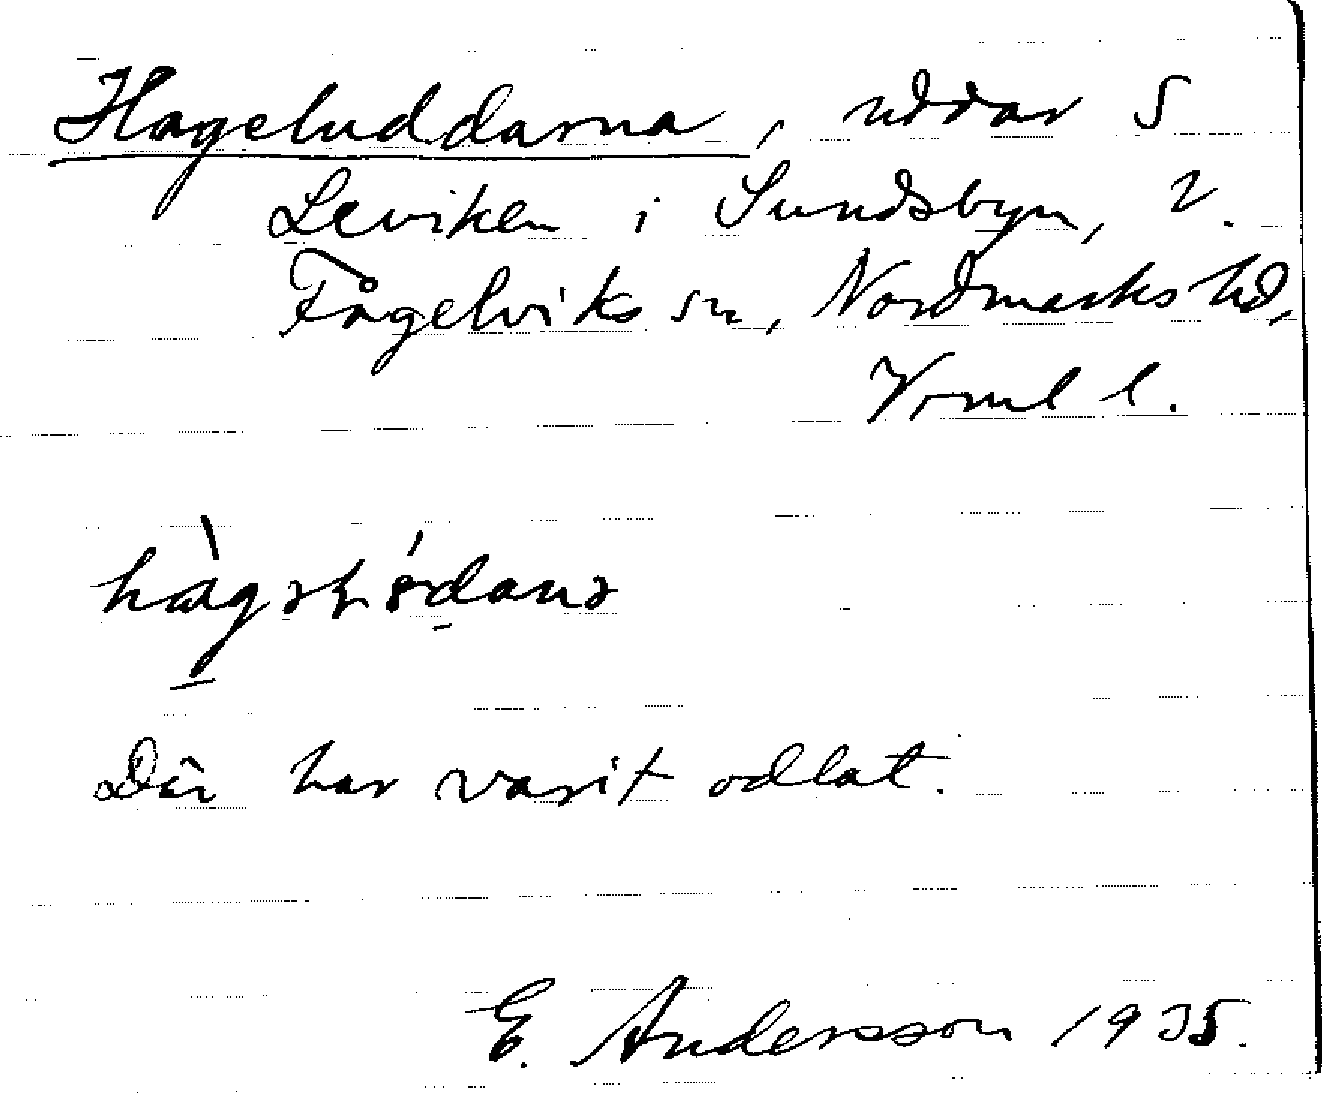 Hageluddarna, uddar S
Leviken i Sundsbyn, V.
Fågelviks sn, Nordmarks hd,
Vrml l.
Där har varit odlat.
E. Andersson 1935.